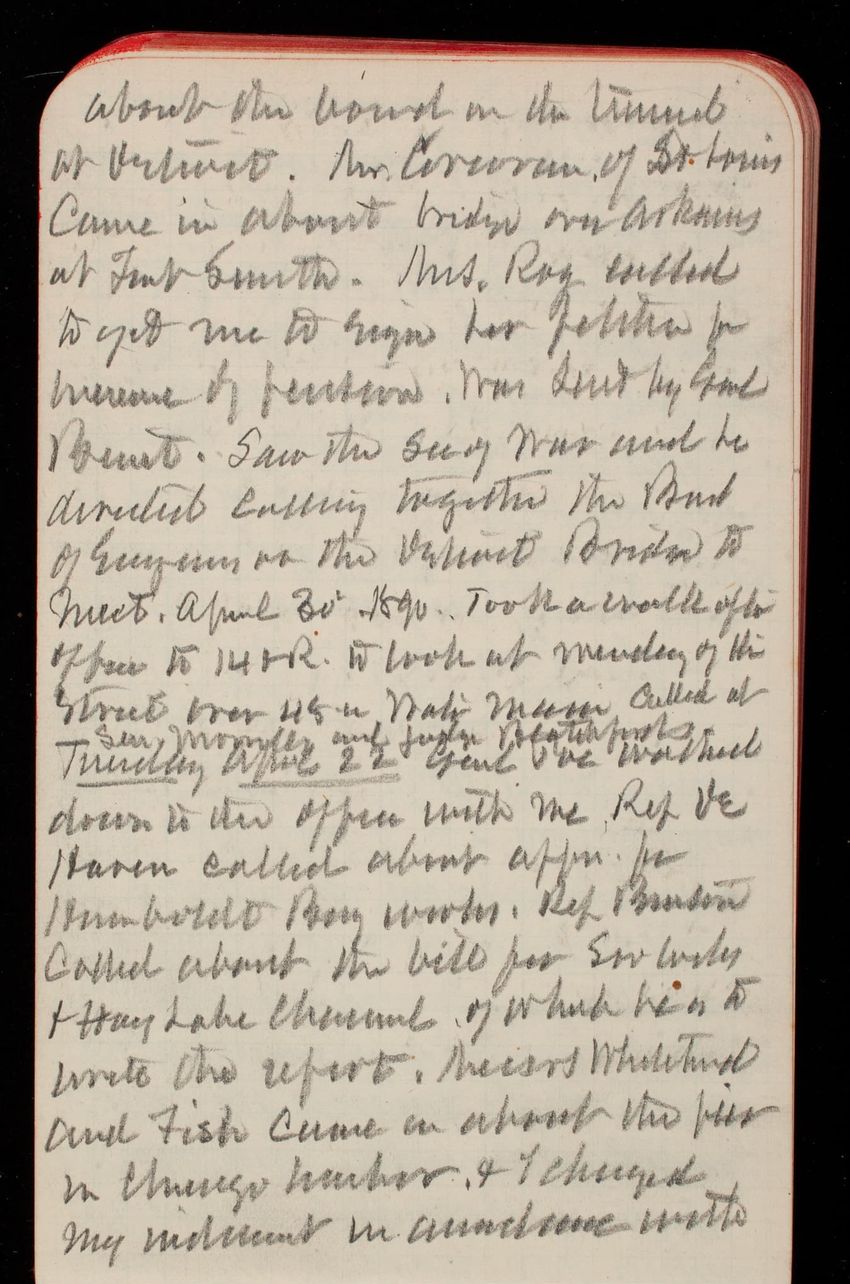 about the board on the tunnel
at Detroit. Mr. Corcoran, of St. Louis
Came in about bridge over Arkansas
at Fort Smith. Mrs. Roy called
to get me to sign her petition for
increase of pension. Was sent by Genl
Benet. Saw the Secy War and he
directed calling together the Board
of Engineers on the Detroit Bridge to
Meet. April 30 1890. Took a walk after
office to 14 & R. to look at mending of the
Street over 48 in Water main Called at
Sen Morrills and Judge Blatchfords
Tuesday April 22 Genl Poe walked
down to the office with me Rep De
Haven called about appn. for
Humboldt Bay works. Rep
Called about the bill for Soo locks
& Hay Lake Channel, of which he is to
write the report. Messrs
and Fish came in about the pier
in Chicago harbor, & I changed
My indorsement in accordance with